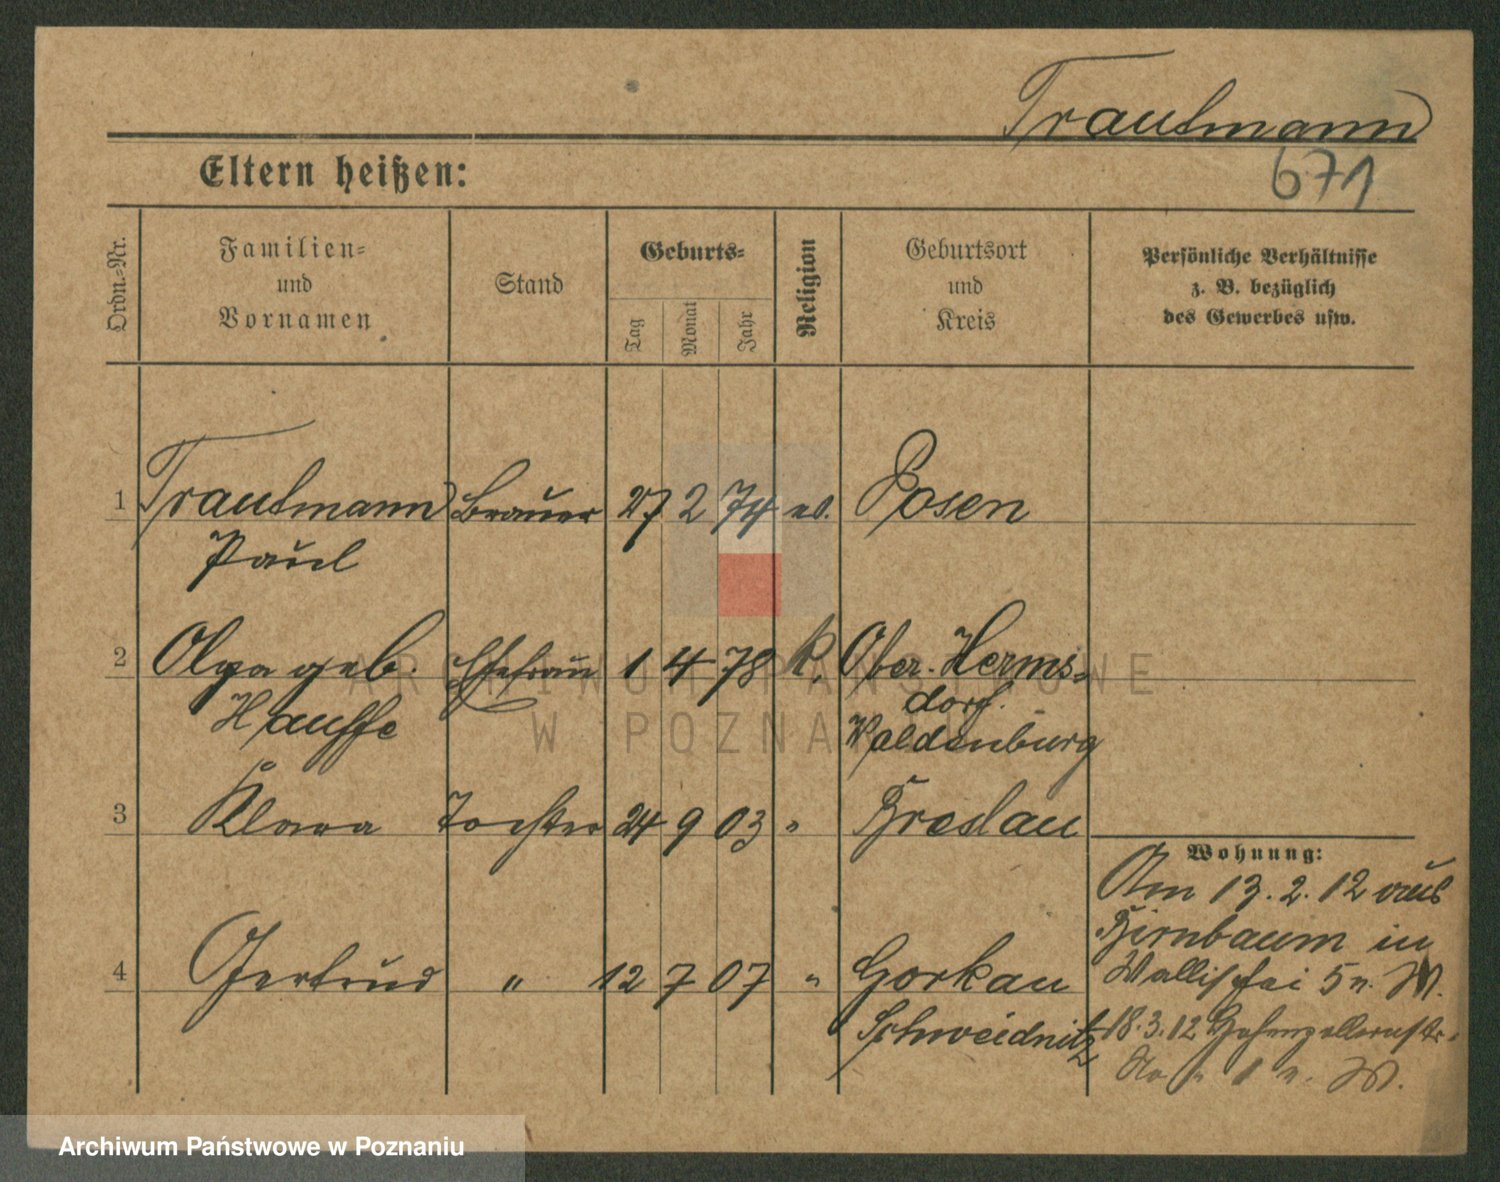 Trautmann
671
Eltern heißen:
Ordn.=Nr.
Familien=
und
Vornamen
Stand
Geburts=
Tag
Monat
Jahr
Religion
Geburtsort
und
Kreis
Persönliche Verhältnisse
z. B. bezüglich
des Gewerbes usw.
1 Trautmann Brauer 27 2 74 ev. Posen
Paul
2 Olga geb. Ehefrau 1 4 78 k. Ober-Herms=
Hauffe dorf.
Waldenburg
3 Klara Tochter 24 9 03 " Breslau
Wohnung:
Am 13.2.12 aus
Birnbaum in
4 Gertrud " 12 7 07 " Gorkau
Schweidnitz
Wallischei 5 n. W.
18.3.12 Hohenzollernstr.
1 n. W.
ARCHIWUM PAŃSTWOWE
W POZNANIU
Archiwum Państwowe w Poznaniu